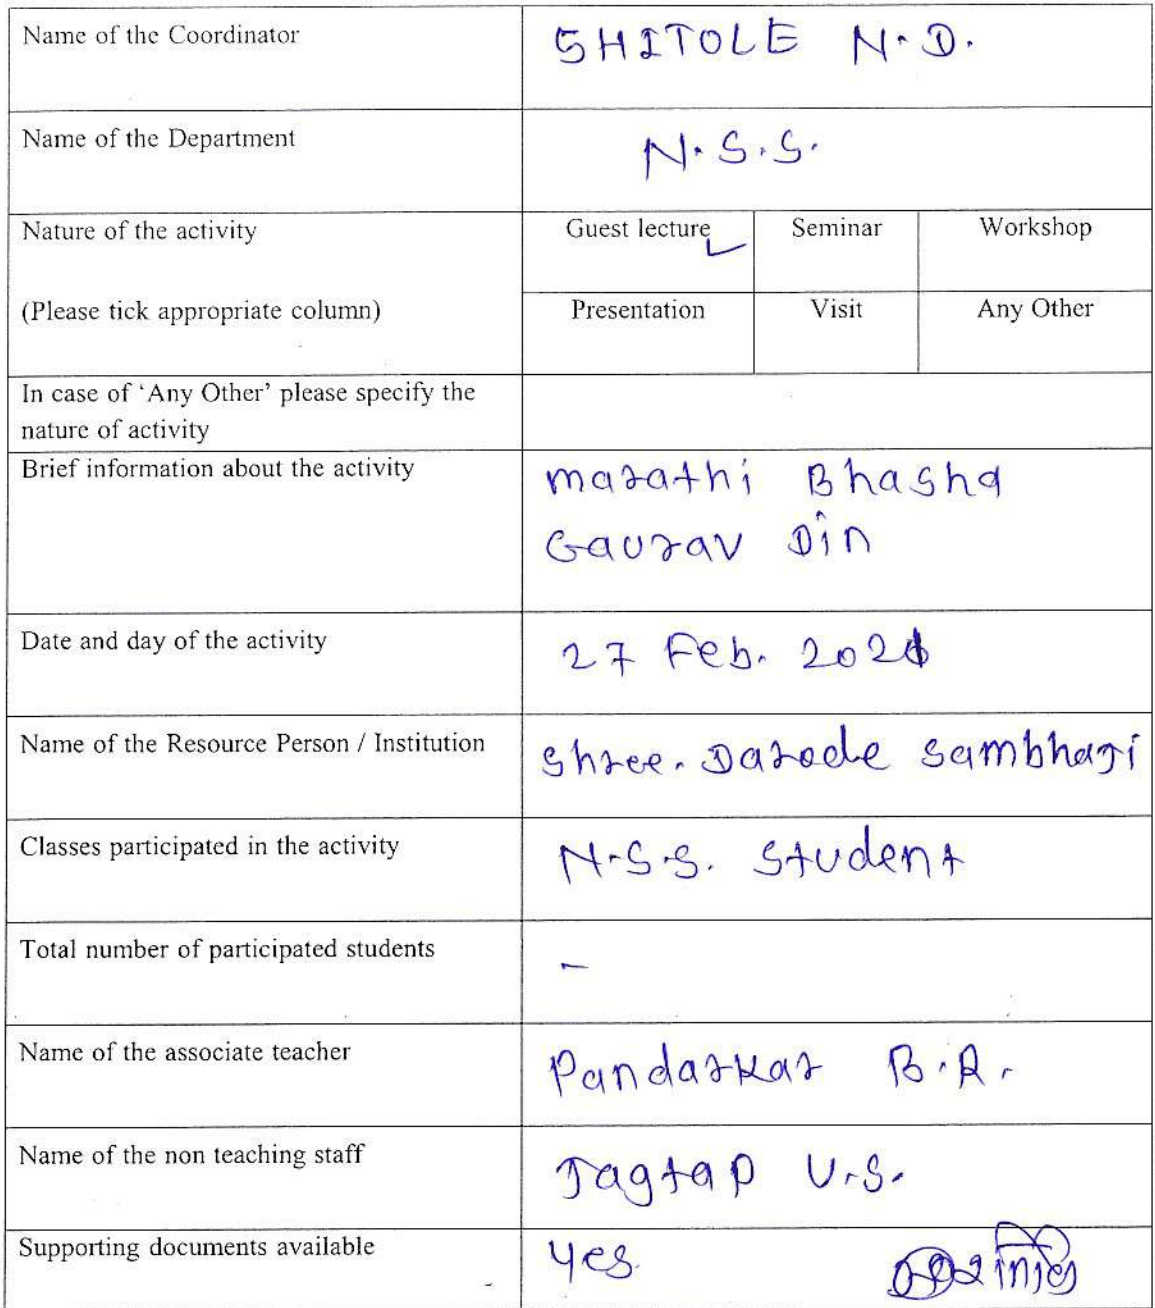 Name of the Coordinator
SHITOLE N.D.
Name of the Department
N.S.S.
Nature of the activity
Guest lecture ✓
Seminar
Workshop
(Please tick appropriate column)
Presentation
Visit
Any Other
In case of ‘Any Other’ please specify the
nature of activity
Brief information about the activity
marathi Bhasha
Gaurav Din
Date and day of the activity
27 Feb. 2021
Name of the Resource Person / Institution
Shree. Darode Sambhaji
Classes participated in the activity
N.S.S. Student
Total number of participated students
-
Name of the associate teacher
Pandarkar B.R.
Name of the non teaching staff
Jagtap U.S.
Supporting documents available
Yes.